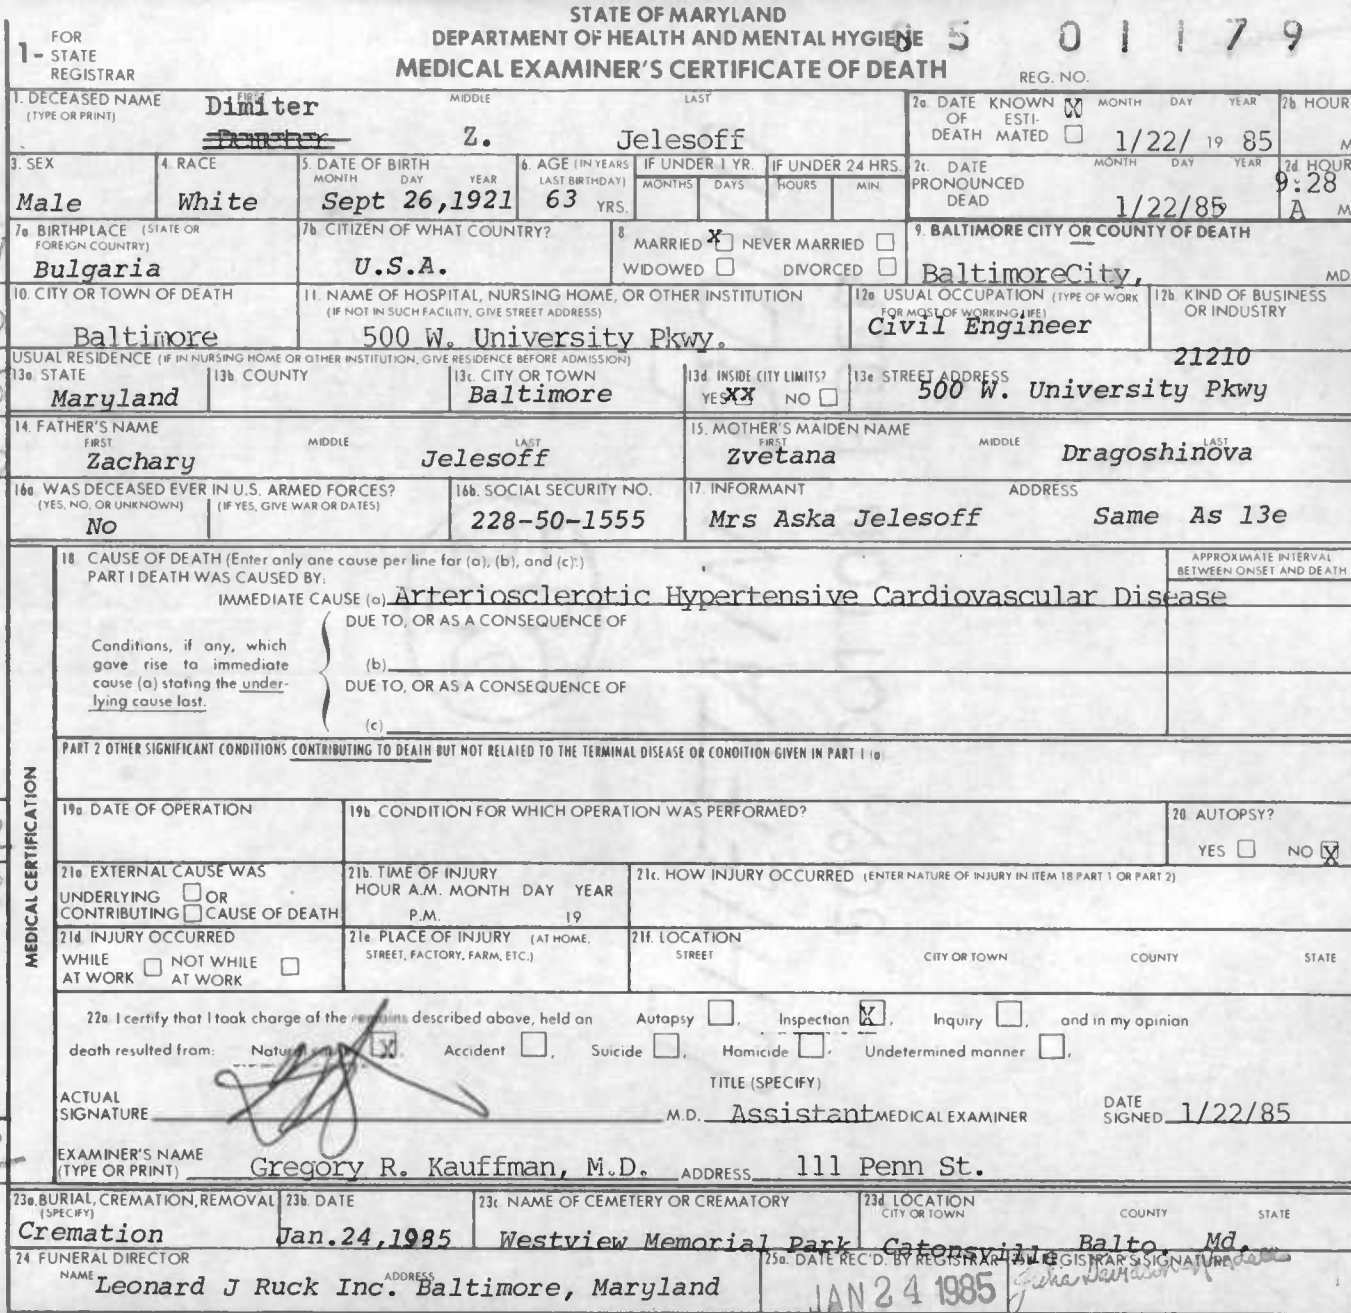 STATE OF MARYLAND
DEPARTMENT OF HEALTH AND MENTAL HYGIENE
MEDICAL EXAMINER'S CERTIFICATE OF DEATH
1- FOR STATE REGISTRAR
85 01179
REG. NO.
1. DECEASED NAME (TYPE OR PRINT) FIRST MIDDLE LAST
Dimiter
Demeter Z. Jelesoff
2a DATE OF DEATH KNOWN X ESTIMATED MONTH DAY YEAR 1/22/ 19 85
2b HOUR M
3. SEX Male
4. RACE White
5. DATE OF BIRTH MONTH DAY YEAR Sept 26,1921
6. AGE (IN YEARS LAST BIRTHDAY) 63 YRS.
IF UNDER 1 YR. MONTHS DAYS
IF UNDER 24 HRS. HOURS MIN.
2c. DATE PRONOUNCED DEAD MONTH DAY YEAR 1/22/85
2d HOUR 9:28 A M
7a BIRTHPLACE (STATE OR FOREIGN COUNTRY) Bulgaria
7b CITIZEN OF WHAT COUNTRY? U.S.A.
8 MARRIED X NEVER MARRIED WIDOWED DIVORCED
9. BALTIMORE CITY OR COUNTY OF DEATH BaltimoreCity, MD
10. CITY OR TOWN OF DEATH Baltimore
11. NAME OF HOSPITAL, NURSING HOME, OR OTHER INSTITUTION (IF NOT IN SUCH FACILITY, GIVE STREET ADDRESS) 500 W. University Pkwy.
12a USUAL OCCUPATION (TYPE OF WORK FOR MOST OF WORKING LIFE) Civil Engineer
12b. KIND OF BUSINESS OR INDUSTRY
USUAL RESIDENCE (IF IN NURSING HOME OR OTHER INSTITUTION, GIVE RESIDENCE BEFORE ADMISSION)
13a STATE Maryland
13b COUNTY
13c. CITY OR TOWN Baltimore
13d. INSIDE CITY LIMITS? YES XX NO
13e STREET ADDRESS 21210 500 W. University Pkwy
14. FATHER'S NAME FIRST MIDDLE LAST Zachary Jelesoff
15. MOTHER'S MAIDEN NAME FIRST MIDDLE LAST Zvetana Dragoshinova
16a WAS DECEASED EVER IN U.S. ARMED FORCES? (YES, NO, OR UNKNOWN) (IF YES, GIVE WAR OR DATES) No
16b. SOCIAL SECURITY NO. 228-50-1555
17. INFORMANT ADDRESS Mrs Aska Jelesoff Same As 13e
MEDICAL CERTIFICATION
18 CAUSE OF DEATH (Enter only one cause per line for (a), (b), and (c).)
APPROXIMATE INTERVAL BETWEEN ONSET AND DEATH
PART I DEATH WAS CAUSED BY:
IMMEDIATE CAUSE (a) Arteriosclerotic Hypertensive Cardiovascular Disease
DUE TO, OR AS A CONSEQUENCE OF
Conditions, if any, which gave rise to immediate cause (a) stating the underlying cause last.
(b)
DUE TO, OR AS A CONSEQUENCE OF
(c)
PART 2 OTHER SIGNIFICANT CONDITIONS CONTRIBUTING TO DEATH BUT NOT RELATED TO THE TERMINAL DISEASE OR CONDITION GIVEN IN PART 1 (a)
19a. DATE OF OPERATION
19b. CONDITION FOR WHICH OPERATION WAS PERFORMED?
20 AUTOPSY? YES NO X
21a EXTERNAL CAUSE WAS UNDERLYING OR CONTRIBUTING CAUSE OF DEATH
21b. TIME OF INJURY HOUR A.M. MONTH DAY YEAR P.M. 19
21c. HOW INJURY OCCURRED (ENTER NATURE OF INJURY IN ITEM 18 PART 1 OR PART 2)
21d INJURY OCCURRED WHILE AT WORK NOT WHILE AT WORK
21e PLACE OF INJURY (AT HOME, STREET, FACTORY, FARM, ETC.)
21f. LOCATION STREET CITY OR TOWN COUNTY STATE
22a I certify that I took charge of the remains described above, held an Autopsy , Inspection X , Inquiry , and in my opinion
death resulted from: Natural X Accident , Suicide , Homicide , Undetermined manner ,
TITLE (SPECIFY)
ACTUAL SIGNATURE M.D. Assistant MEDICAL EXAMINER DATE SIGNED 1/22/85
EXAMINER'S NAME (TYPE OR PRINT) Gregory R. Kauffman, M.D. ADDRESS 111 Penn St.
23a. BURIAL, CREMATION, REMOVAL (SPECIFY) Cremation
23b. DATE Jan.24,1985
23c NAME OF CEMETERY OR CREMATORY Westview Memorial Park
23d. LOCATION CITY OR TOWN COUNTY STATE Catonsville Balto. Md.
24 FUNERAL DIRECTOR NAME Leonard J Ruck Inc. ADDRESS Baltimore, Maryland
25a. DATE REC'D. BY REGISTRAR JAN 24 1985
REGISTRAR'S SIGNATURE